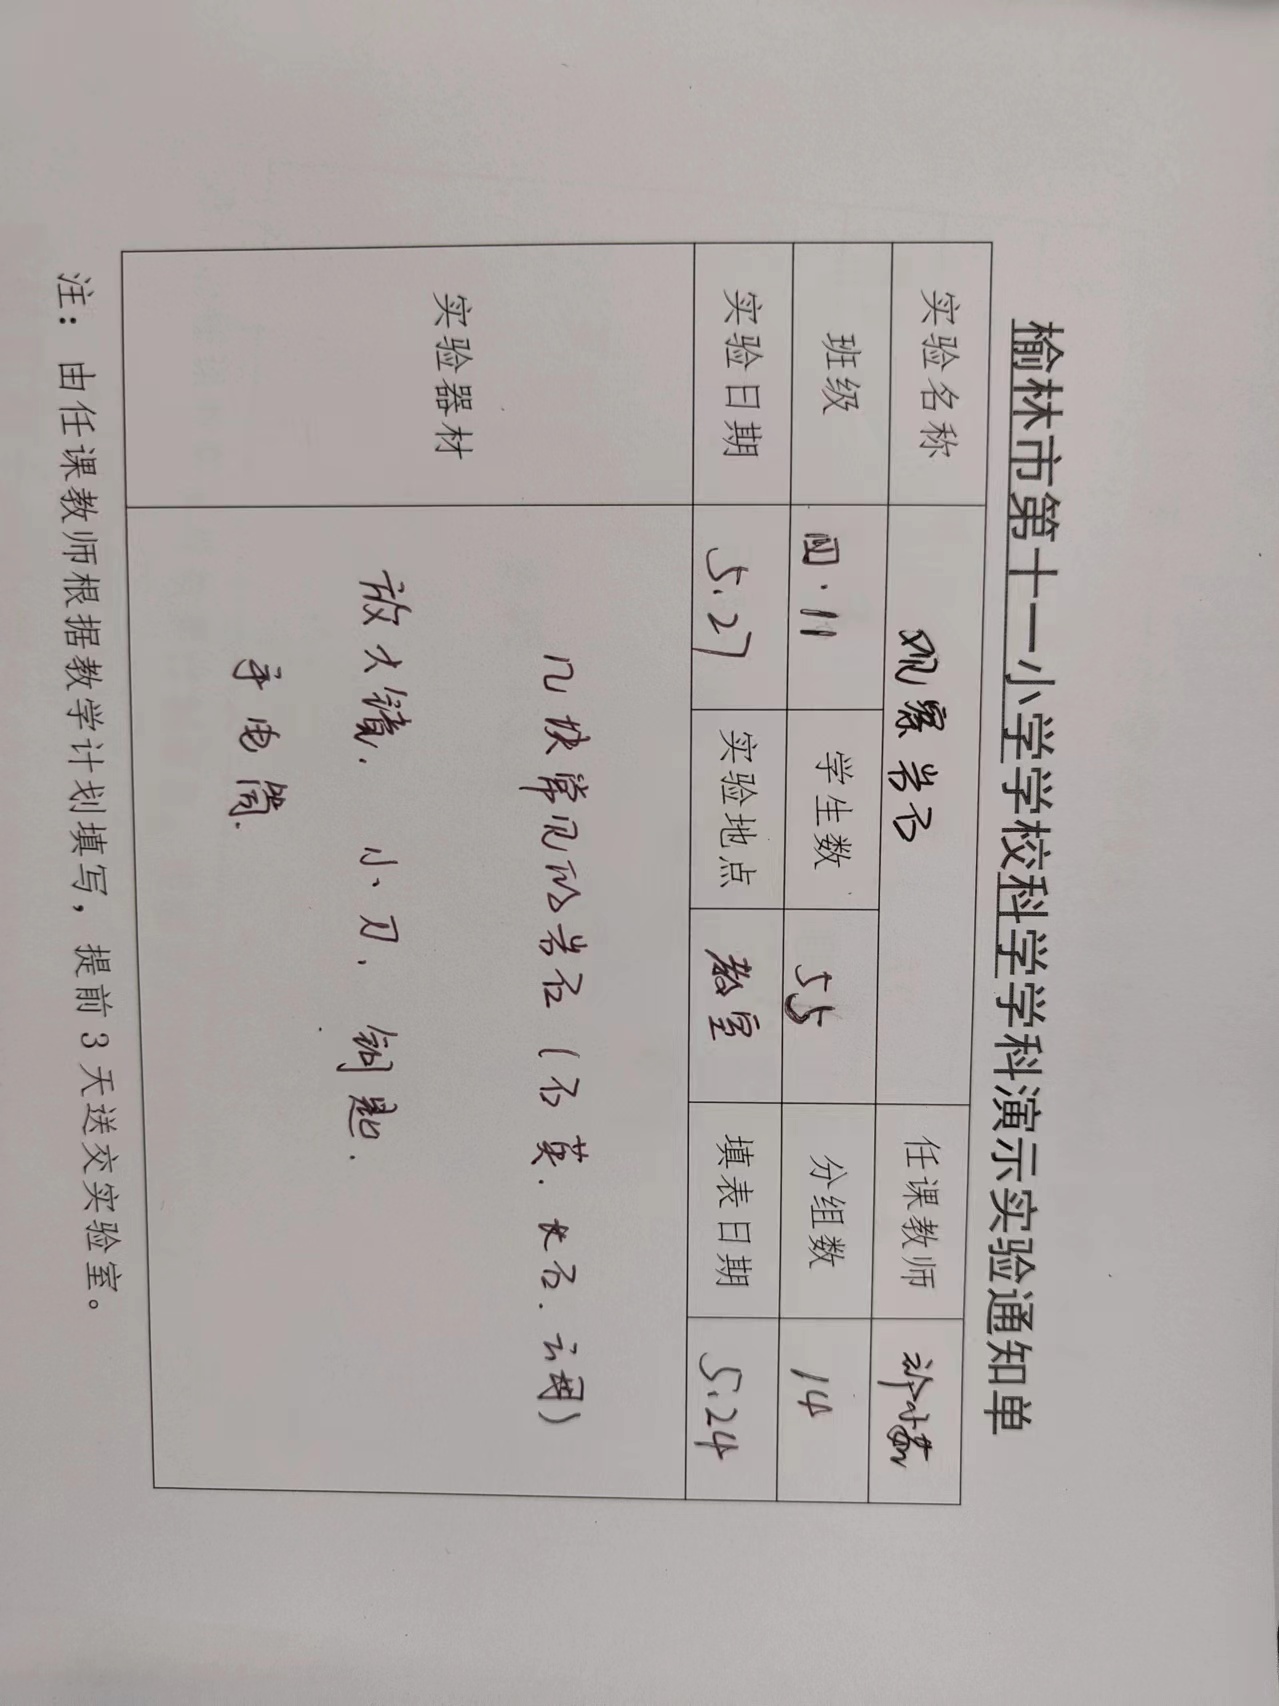 榆林市第十一小学学校科学学科演示实验通知单
实验名称 观察岩石 任课教师
班级 四·11 学生数 55 分组数 14
实验日期 5.27 实验地点 教室 填表日期 5.24
实验器材
几块常见的岩石（石英.长石.云母）
放大镜. 小刀. 铜匙.
手电筒.
注：由任课教师根据教学计划填写，提前3天送交实验室。